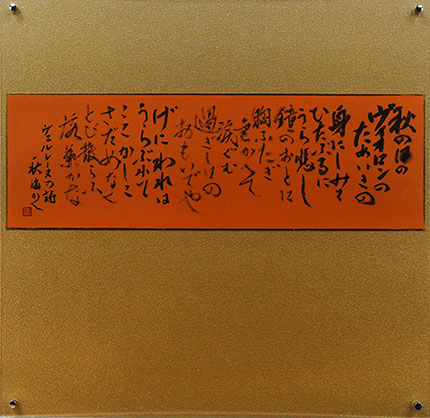 秋の日の
ヴィオロンの
ためいきの
身にしみて
ひたぶるに
うら悲し
鐘のおとに
胸ふたぎ
色かへて
涙ぐむ
過ぎし日の
おもひでや
げにわれは
うらぶれて
ここかしこ
さだめなく
とび散らふ
落葉かな
ヴェルレーヌの詩